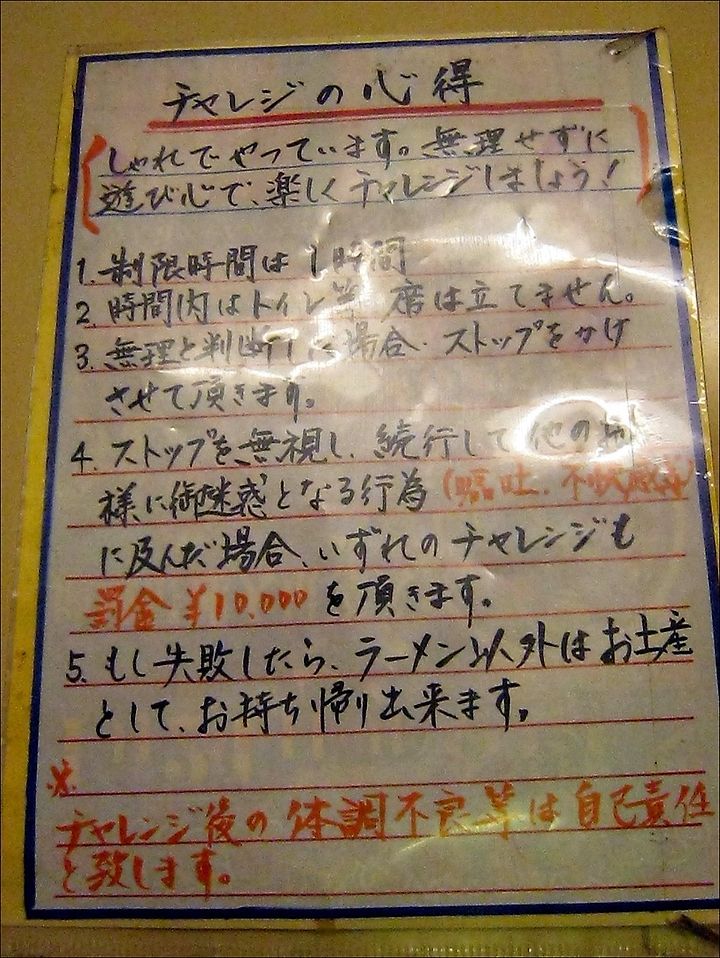 チャレンジの心得
しゃれでやっています。無理せずに
遊び心で、楽しくチャレンジしましょう!
1. 制限時間は1時間
2. 時間内はトイレ等 席は立てません。
3. 無理と判断した場合、ストップをかけ
させて頂きます。
4. ストップを無視し、続行して他の
様に御迷惑となる行為(嘔吐、
に及んだ場合、いずれのチャレンジも
罰金¥10,000を頂きます。
5. もし失敗したら、ラーメン以外はお土産
として、お持ち帰り出来ます。
※
チャレンジ後の体調不良等は自己責任
と致します。